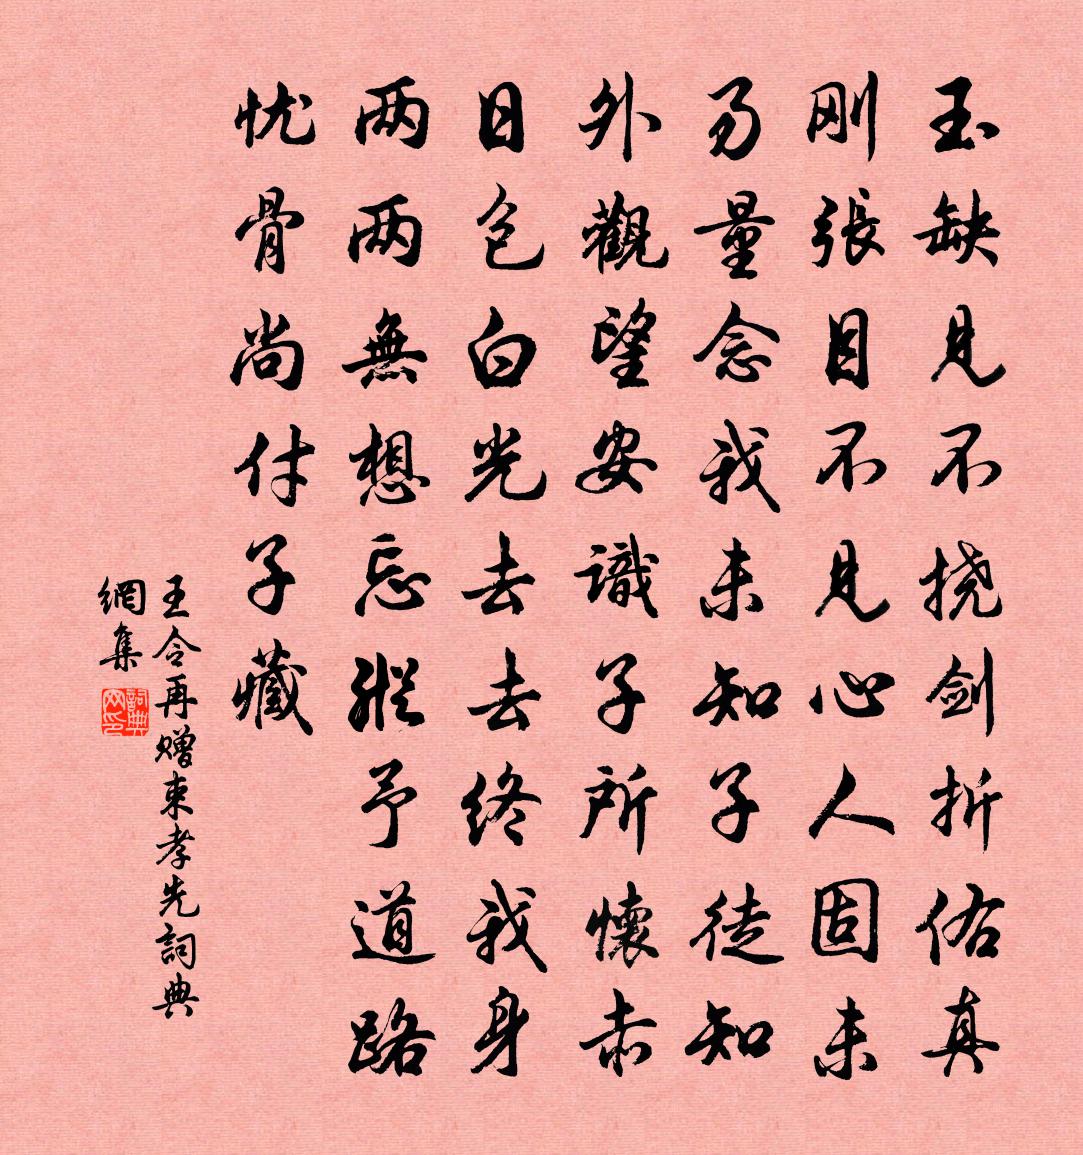 玉缺見不撓劍折佑真
刚張目不見心人固未
易量念我未知子徒知
外觀望安識子所懷赤
日包白光去去终我身
两两無想忘縱予道路
忧骨尚付子藏
王令再赠束孝先詞典
網集
詞典网印